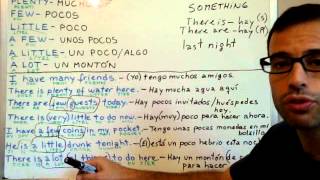 PLENTY- MUCHO
FEW - POCOS
LITTLE - POCO
A FEW - UNOS POCOS
A LITTLE - UN POCO/ALGO
A LOT - UN MONTÓN
SOMETHING
There is - hay (S)
There are - hay (P)
last night
I have many friends. - (Yo) tengo muchos amigos.
There is plenty of water here. - Hay mucha agua aquí
There are few guests today. - Hay pocos invitados/huéspedes hoy.
There is (very) little to do now. - Hay (muy) poco para hacer ahora.
I have a few coins in my pocket. - Tengo unas pocas monedas en mi bolsillo.
He is a little drunk tonight. - (Él) está un poco ebrio esta noc
There is a lot of things to do here. - Hay un montón de